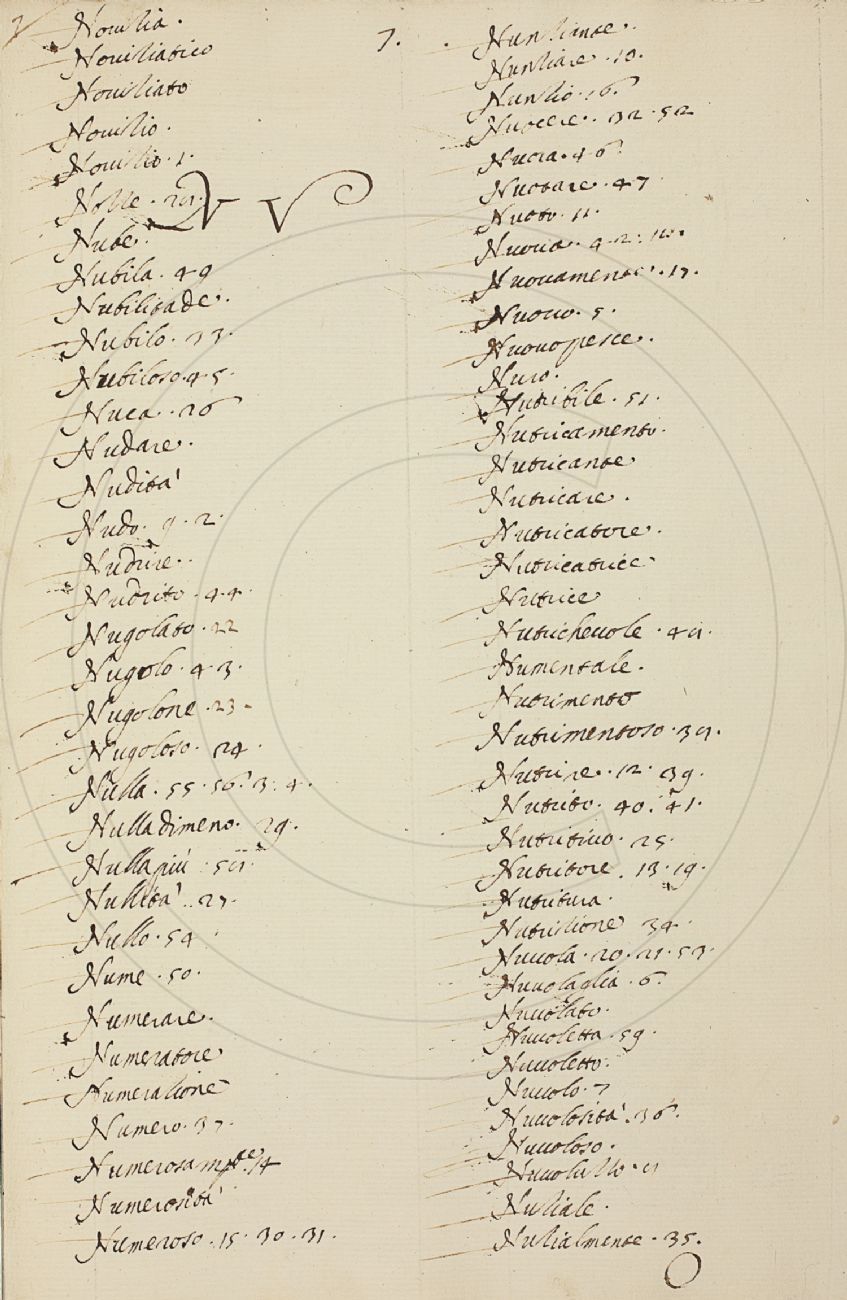 7.
Noviziatico
Noviziato
Novizio.
Novizio. 1.
NV
Nube.
Nubila. 49
Nubilitade.
Nubilo. 33.
Nubiloso. 45.
Nuca. 26
Nudare.
Nudità
Nudo. 9. 2.
Nudrire.
Nudrito. 44.
Nugolato. 22
Nugolo. 43.
Nugolone. 23.
Nugoloso. 24.
Nulla. 55. 56. 3. 4.
Nulladimeno. 29.
Nulla più
Nullità. 27.
Nullo. 54
Nume. 50.
Numerare.
Numeratore
Numerazione
Numero. 37.
Numerosamte. 14
Numerosità
Numeroso. 15. 30. 31.
Nunziante.
Nunziare. 10.
Nunzio. 16.
Nuocere. 32. 52
Nuora. 46.
Nuotare. 47
Nuoto. 11.
Nuova. 42.
Nuovamente. 17.
Nuovo. 5.
Nuovopesce.
Nuro.
Nutribile. 51.
Nutricamento.
Nutricante
Nutricare.
Nutricatore.
Nutricatrice
Nutrice
Nutrichevole.
Numentale.
Nutrimento
Nutrimentoso.
Nutrire. 12. 39.
Nutrito. 40. 41.
Nutritivo. 25.
Nutritore. 13. 19.
Nutritura.
Nutrizione 34.
Nuvola. 20. 21. 53.
Nuvolaglia. 6.
Nuvolato.
Nuvoletta. 59.
Nuvoletto.
Nuvolo. 7
Nuvolosità. 36.
Nuvoloso.
Nuvoluzzo.
Nuziale.
Nuzialmente. 35.